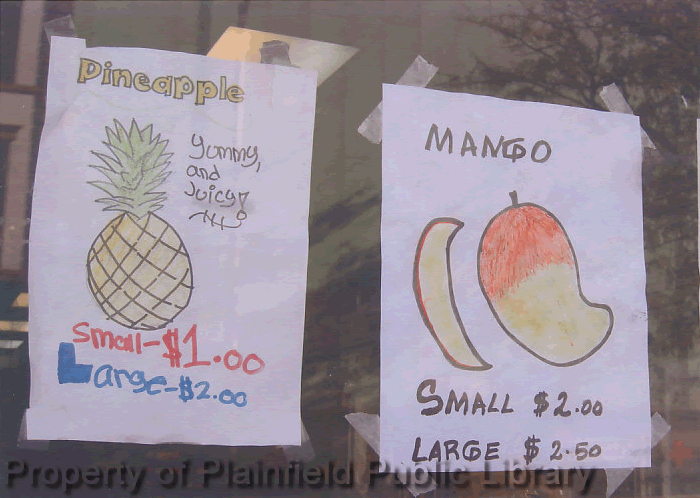 Pineapple
yummy,
and
Juicy!
Small-$1.00
Large-$2.00
MANGO
SMALL $2.00
LARGE $2.50
Property of Plainfield Public Library